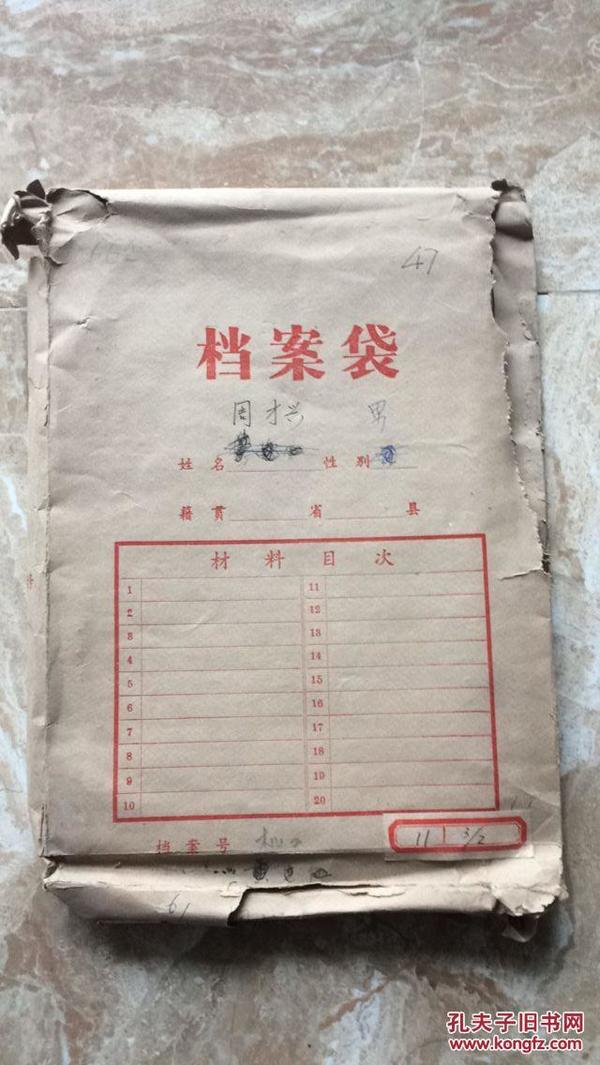 47
档案袋
周才兴 男
姓名 性别
籍贯 省 县
材料目次
1 11
2 12
3 13
4 14
5 15
6 16
7 17
8 18
9 19
10 20
档案号
11 3/2
61
孔夫子旧书网
www.kongfz.com